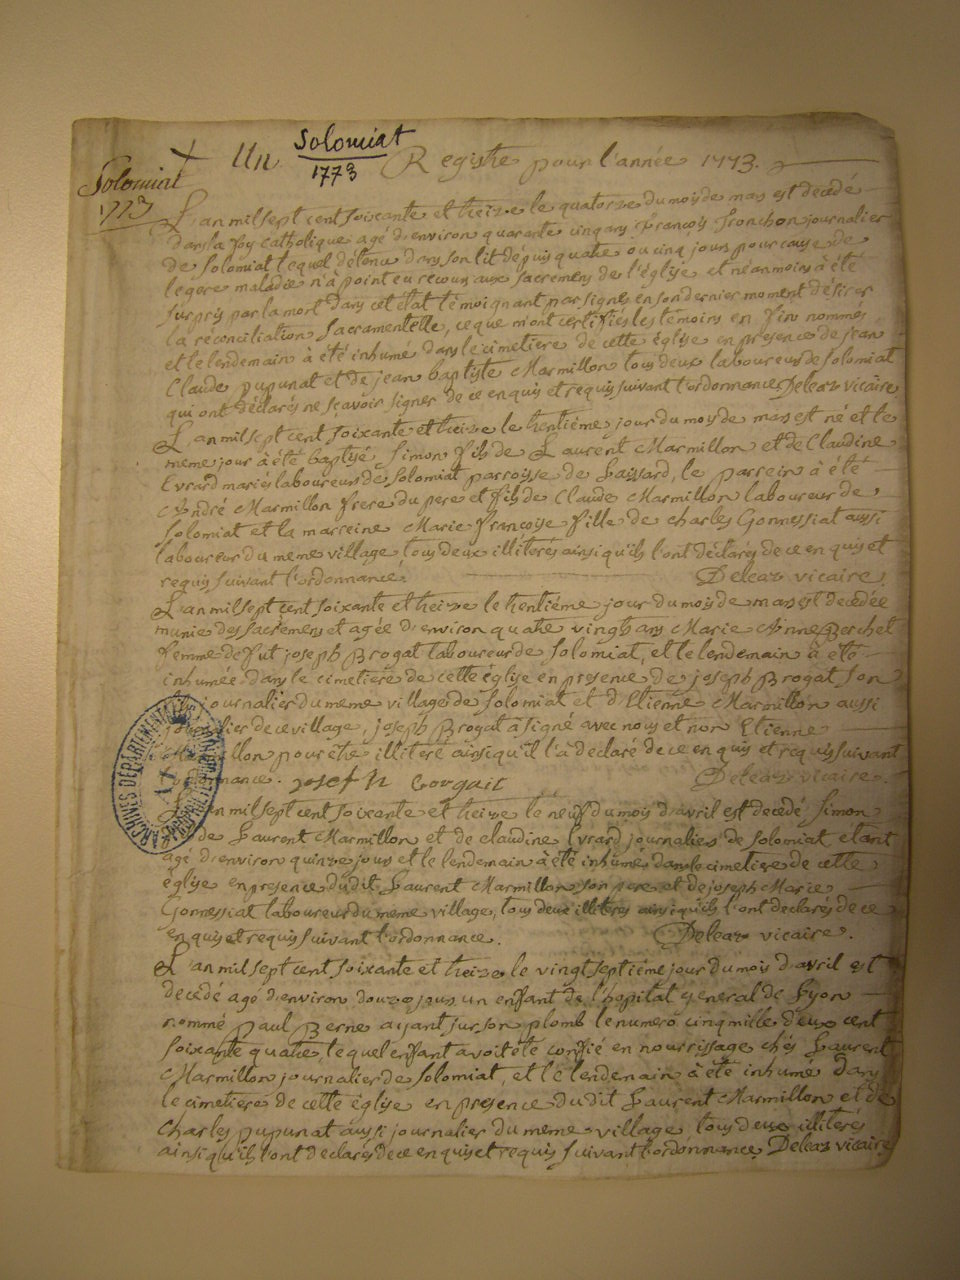 Solomiat
1773
Solomiat
1773
Un Registre pour l'année 1773.
L'an mil sept cent soixante et treize le quatorze du mois de mars est decedé
dans la foy catholique agé d'environ quarante cinq ans françois Tronchon journalier
de Solomiat lequel détenu dans son lit dépuis quatre ou cinq jours pour cause de
légére maladie n'à point eu recours aux sacremens de l'église et néanmoins à été
surpris par la mort dans cet état témoignant par signes en son dernier moment désirer
la réconciliation Sacramentelle, ce que m'ont certifiés les témoins en fin nommés
et le lendemain à été inhumé dans le cimetiere de cette église en presence de jean
Claude pupunat et de jean baptiste Marmillon tous deux laboureurs de Solomiat
qui ont déclarés ne scavoir signer de ce enquis et requis suivant l'ordonnance. Deleaz vicaire
L'an mil sept cent soixante et treize le trentiéme jour du mois de mars est né et le
meme jour à été baptisé Simon fils de Laurent Marmillon et de Claudine
Evrard mariés laboureurs de Solomiat parroisse de Leissard, le parrein à été
André Marmillon frere du pere et fils de Claude Marmillon laboureur de
Solomiat et la marreine Marie françoise fille de charles Gonnessiat aussi
laboureur du meme village tous deux illiterés ainsi qu'ils l'ont déclarés de ce enquis et
requis suivant l'ordonnance. Deleaz vicaire.
L'an mil sept cent soixante et treize le trentiéme jour du mois de mars est decedée
munie des sacremens et agée d'environ quatre vingts ans Marie Anne Berchet
femme de fut joseph Brogat laboureur de Solomiat, et le lendemain à été
inhumée dans le cimetiere de cette église en presence de joseph Brogat son
journalier du meme village de Solomiat et d'Etienne Marmillon aussi
journalier de ce village, joseph Brogat à signé avec nous et non Etienne
Marmillon pour être illiteré ainsi qu'il l'à declaré de ce enquis et requis suivant
l'ordonnance. Deleaz vicaire.
L'an mil sept cent soixante et treize le neuf du mois d'avril est decedé Simon
fils de Laurent Marmillon et de claudine Evrard journaliers de Solomiat etant
agé d'environ quinze jours et le lendemain à été inhumé dans le cimetiere de cette
église en presence dudit Laurent Marmillon son pere et de joseph Marie
Gonnessiat laboureur du meme village, tous deux illiterés ainsi qu'ils l'ont declarés de ce
enquis et requis suivant l'ordonnance. Deleaz vicaire.
L'an mil sept cent soixante et treize le vingt septiéme jour du mois d'avril est
decedé agé d'environ douze jours un enfant de l'hopital general de Lyon
nommé paul Berne ayant sur son plomb le numero cinq mille deux cent
soixante quatre, lequel enfant avoit été confié en nourrissage chés Laurent
Marmillon journalier de Solomiat, et le lendemain à été inhumé dans
le cimetiere de cette église en presence dudit Laurent Marmillon et de
charles pupunat aussi journalier du meme village tous deux illiterés
ainsi qu'ils l'ont declarés de ce enquis et requis suivant l'ordonnance, Deleaz vicaire
ARCHIVES DÉPARTEMENTALES
AIN